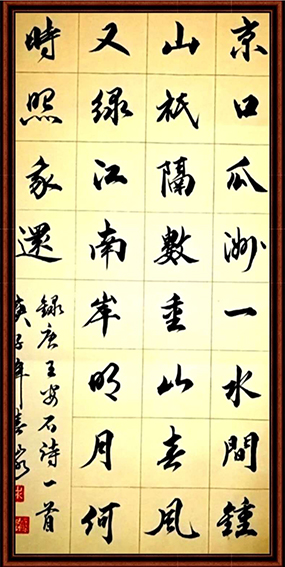 京口瓜洲一水間鍾
山祇隔數重山春風
又綠江南岸明月何
時照我還
錄唐王安石詩一首
庚子年春